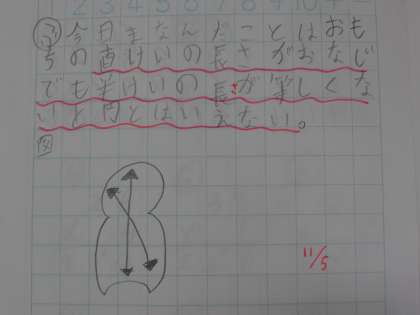 ふ 今日まなんだことはおも
ちの直けいの長さがおなじ
でも半けいの長さが等しくな
いと円とはいえない。
図
11/5